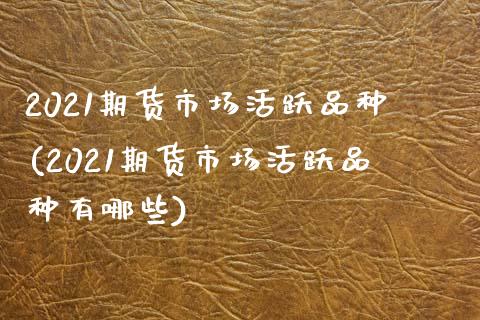 2021期货市场活跃品种
(2021期货市场活跃品
种有哪些)